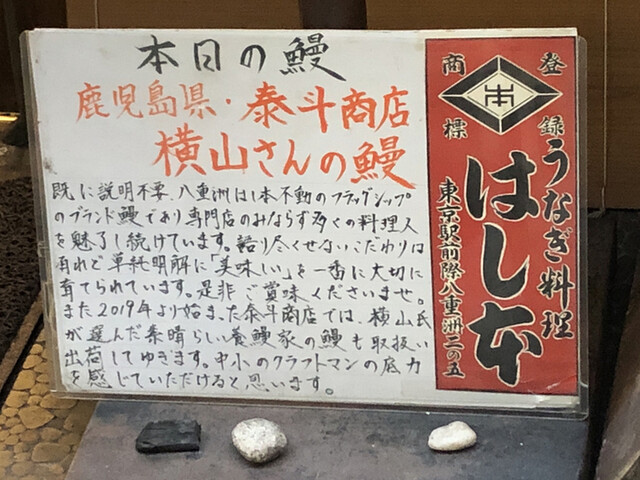 本日の鰻
鹿児島県・泰斗商店
横山さんの鰻
既に説明不要、八重洲はし本不動のフラッグシップ
のブランド鰻であり専門店のみならず多くの料理人
を魅了し続けています。語り尽くせないこだわりは
有れど単純明解に「美味しい」を一番に大切に
育てられています。是非ご賞味くださいませ。
また2019年より始まった泰斗商店では、横山氏
が選んだ素晴らしい養鰻家の鰻も取扱い
出荷してゆきます。中小のクラフトマンの底力
を感じていただけると思います。
登録商標
本
うなぎ料理
はし本
東京駅前際八重洲二の五